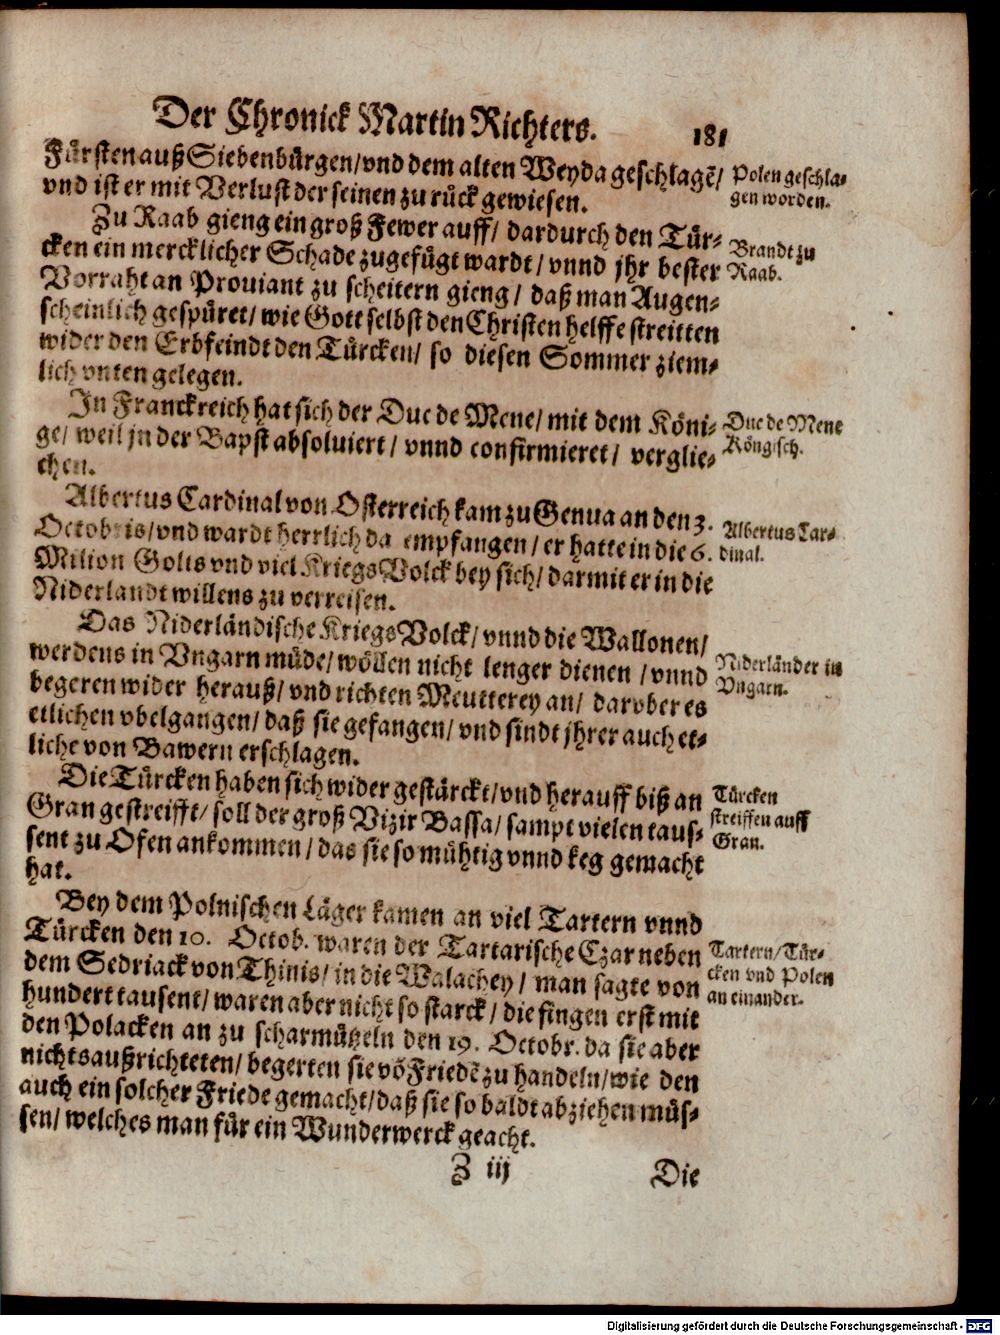 Der Chronick Martin Richters. 181
Fürsten auß Siebenbürgen/ vnd dem alten Weyda geschlagē/
vnd ist er mit Verlust der seinen zu rück gewiesen.
Polen geschla-
gen worden.
Zu Raab gieng ein groß Fewer auff/ dardurch den Tür-
cken ein mercklicher Schade zugefügt wardt/ vnnd jhr bester
Vorraht an Prouiant zu scheitern gieng/ daß man Augen-
scheinlich gespüret/ wie Gott selbst den Christen helffe streitten
wider den Erbfeindt den Türcken/ so diesen Sommer ziem-
lich vnten gelegen.
Brandt zu
Raab.
In Franckreich hat sich der Duc de Mene/ mit dem Köni-
ge/ weil jn der Bapst absoluiert/ vnnd confirmieret/ verglie-
chen.
Duc de Mene
Köngisch.
Albertus Cardinal von Osterreich kam zu Genua an den 3.
Octobris/ vnd wardt herrlich da empfangen/ er hatte in die 6.
Milion Golts vnd viel KriegsVolck bey sich/ darmit er in die
Niderlandt willens zu verreisen.
Albertus Car-
dinal.
Das Niderländische KriegsVolck/ vnnd die Wallonen/
werdens in Vngarn müde/ wöllen nicht lenger dienen/ vnnd
begeren wider herauß/ vnd richten Meutterey an/ darober es
etlichen vbelgangen/ daß sie gefangen/ vnd sindt jhrer auch et-
liche von Bawern erschlagen.
Niderländer in
Vngarn.
Die Türcken haben sich wider gestärckt/ vnd herauff biß an
Gran gestreifft/ soll der groß Vizir Bassa/ sampt vielen taus-
sent zu Ofen ankommen/ das sie so mühtig vnnd keg gemacht
hat.
Türcken
streiffen auff
Gran.
Bey dem Polnischen Läger kamen an viel Tartern vnnd
Türcken den 10. Octob. waren der Tartarische Czar neben
dem Sedriack von Thinis/ in die Walachey/ man sagte von
hundert tausent/ waren aber nicht so starck/ die fingen erst mit
den Polacken an zu scharmützeln den 19. Octobr. da sie aber
nichts außrichteten/ begerten sie vō Friedē zu handeln/ wie den
auch ein solcher Friede gemacht/ daß sie so baldt abziehen müs-
sen/ welches man für ein Wunderwerck geacht.
Tartern/ Tür-
cken vnd Polen
an einander.
Z iij Die
Digitalisierung gefördert durch die Deutsche Forschungsgemeinschaft - DFG